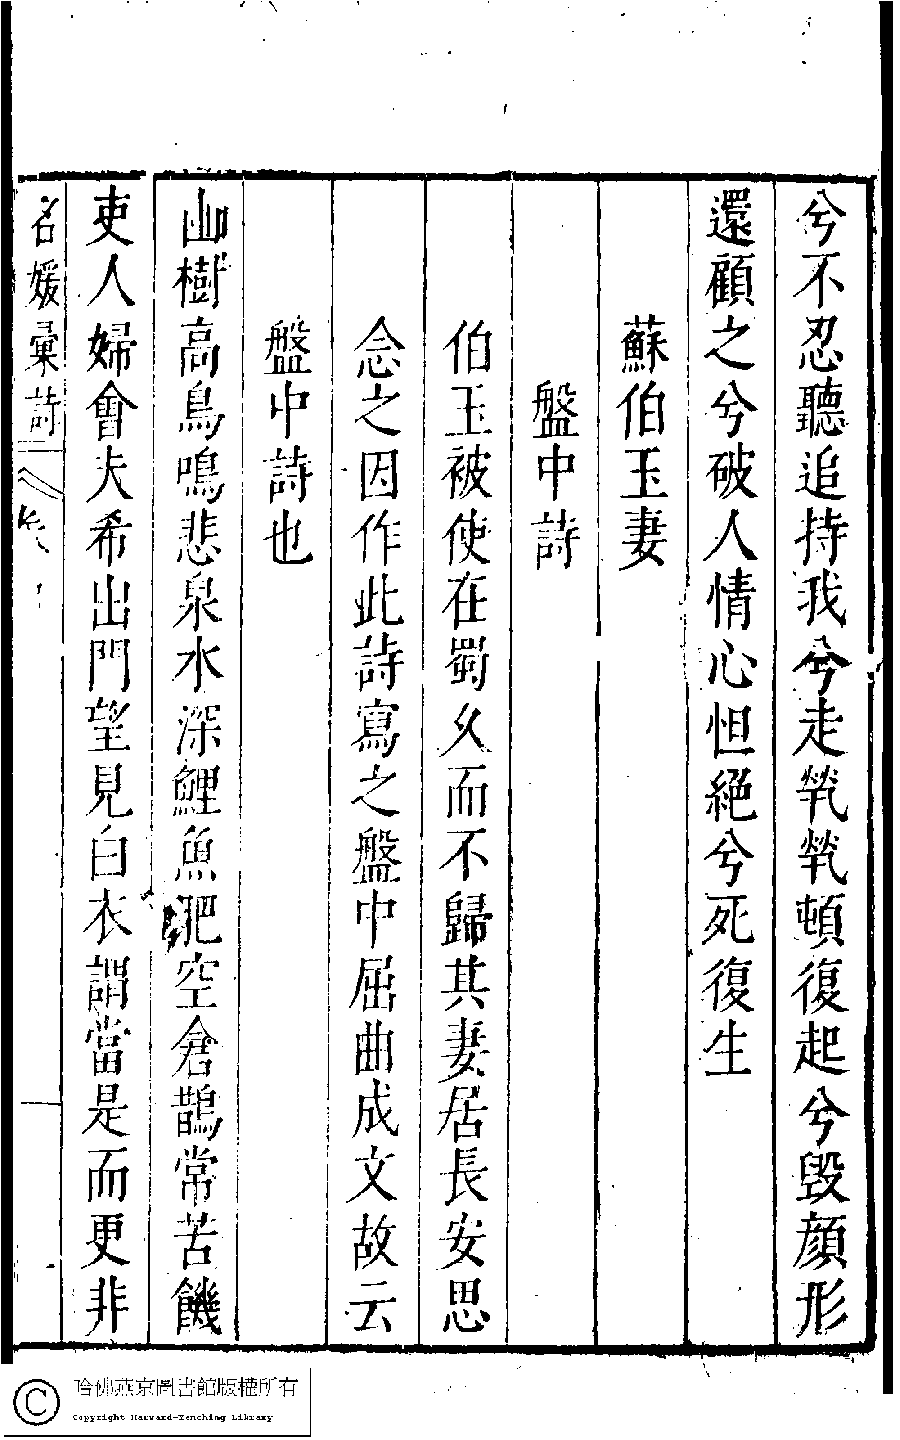 兮不忍聽追持我兮走煢煢頓復起兮毀顏形
還顧之兮破人情心怛絕兮死復生
蘇伯玉妻
盤中詩
伯玉被使在蜀久而不歸其妻居長安思
念之因作此詩寫之盤中屈曲成文故云
盤中詩也
山樹高鳥鳴悲泉水深鯉魚肥空倉鵲常苦饑
吏人婦會夫希出門望見白衣謂當是而更非
名媛彙詩
哈佛燕京圖書館版權所有
Copyright Harvard-Yenching Library